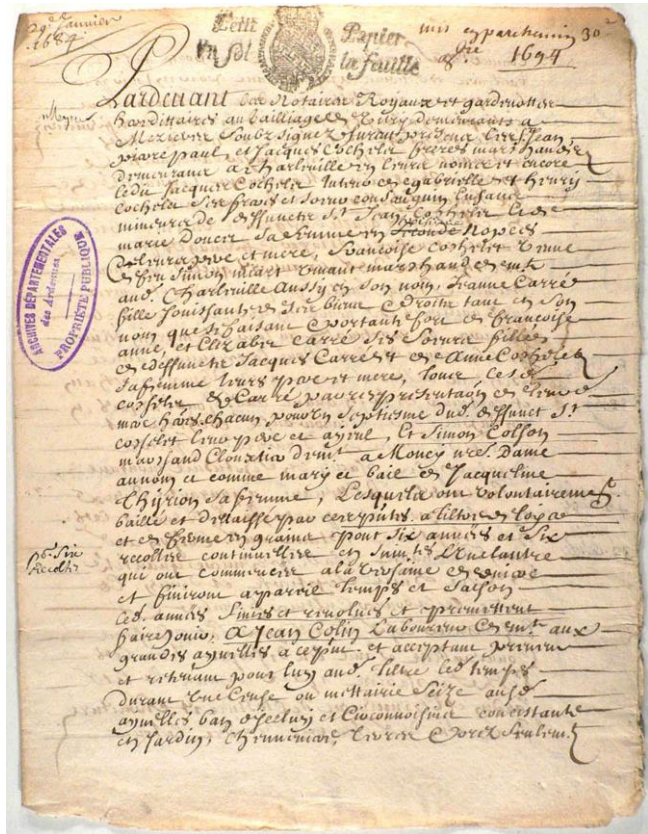 29e Janvier
1684
Petit Papier
Un sol la feuille
mis en parchemin
1694
30
Pardevant les Notaires Royaux et gardenottes
hereditaires au bailliage de Vitry demeurants a
Mezieres soubzsignez furent presens les srs Jean
pierre paul, et Jacques Cochelet freres marchands
demeurans a Charleville en leurs noms et encore
ledit Jacques Cochelet tuteur de gabrielle et henry
Cochelet ses freres et soeurs consanguins Enfans
mineurs de deffunct sr Jean Cochelet et de
marie Doucet sa femme en seconde Nopces
leurs pere et mere, francoise Cochelet veuve
de feu Simon vivant marchand
aud. Charleville Aussy en son nom, Jeanne Carré
fille Jouissante de ses biens et droits tant en son
nom que se faisant et portante fort de francoise
anne, et Elizabet Carré ses soeurs filles
de deffuncts Jacques Carré et de anne Cochelet
sa femme leurs pere et mere, tous
Cochelet et Carré par representation de leur
mere chacun pour un septiesme dud. deffunct sr
Cochelet leur pere et ayeul, Et Simon Colson
marchand demt a Moncy nre Dame
au nom et comme mary et bail de Jacqueline
Thyrion sa femme, Lesquels ont volontairement
baillé et delaissé par ces presentes a tiltre de
et de ferme en grains pour six années et six
pr six
recoltes
recoltes continuelles et suivantes l'une l'autre
qui ont commencées a la versaine derniere
et finiront a pareil temps et saison
lesd. années finies et revolues et promettent
faire Jouir, A Jean Colin Laboureur demt aux
grandes ayvelles a ce present et acceptant preneur
et retenant pour luy aud. tiltre led. temps
durant une Cense ou mettairie seize ausd.
ayvelles ban d'icelluy et Circonvoisins consistante
en Jardin, cheneviere, terres et prez seulemt
ARCHIVES DÉPARTEMENTALES
des Ardennes
PROPRIÉTÉ PUBLIQUE